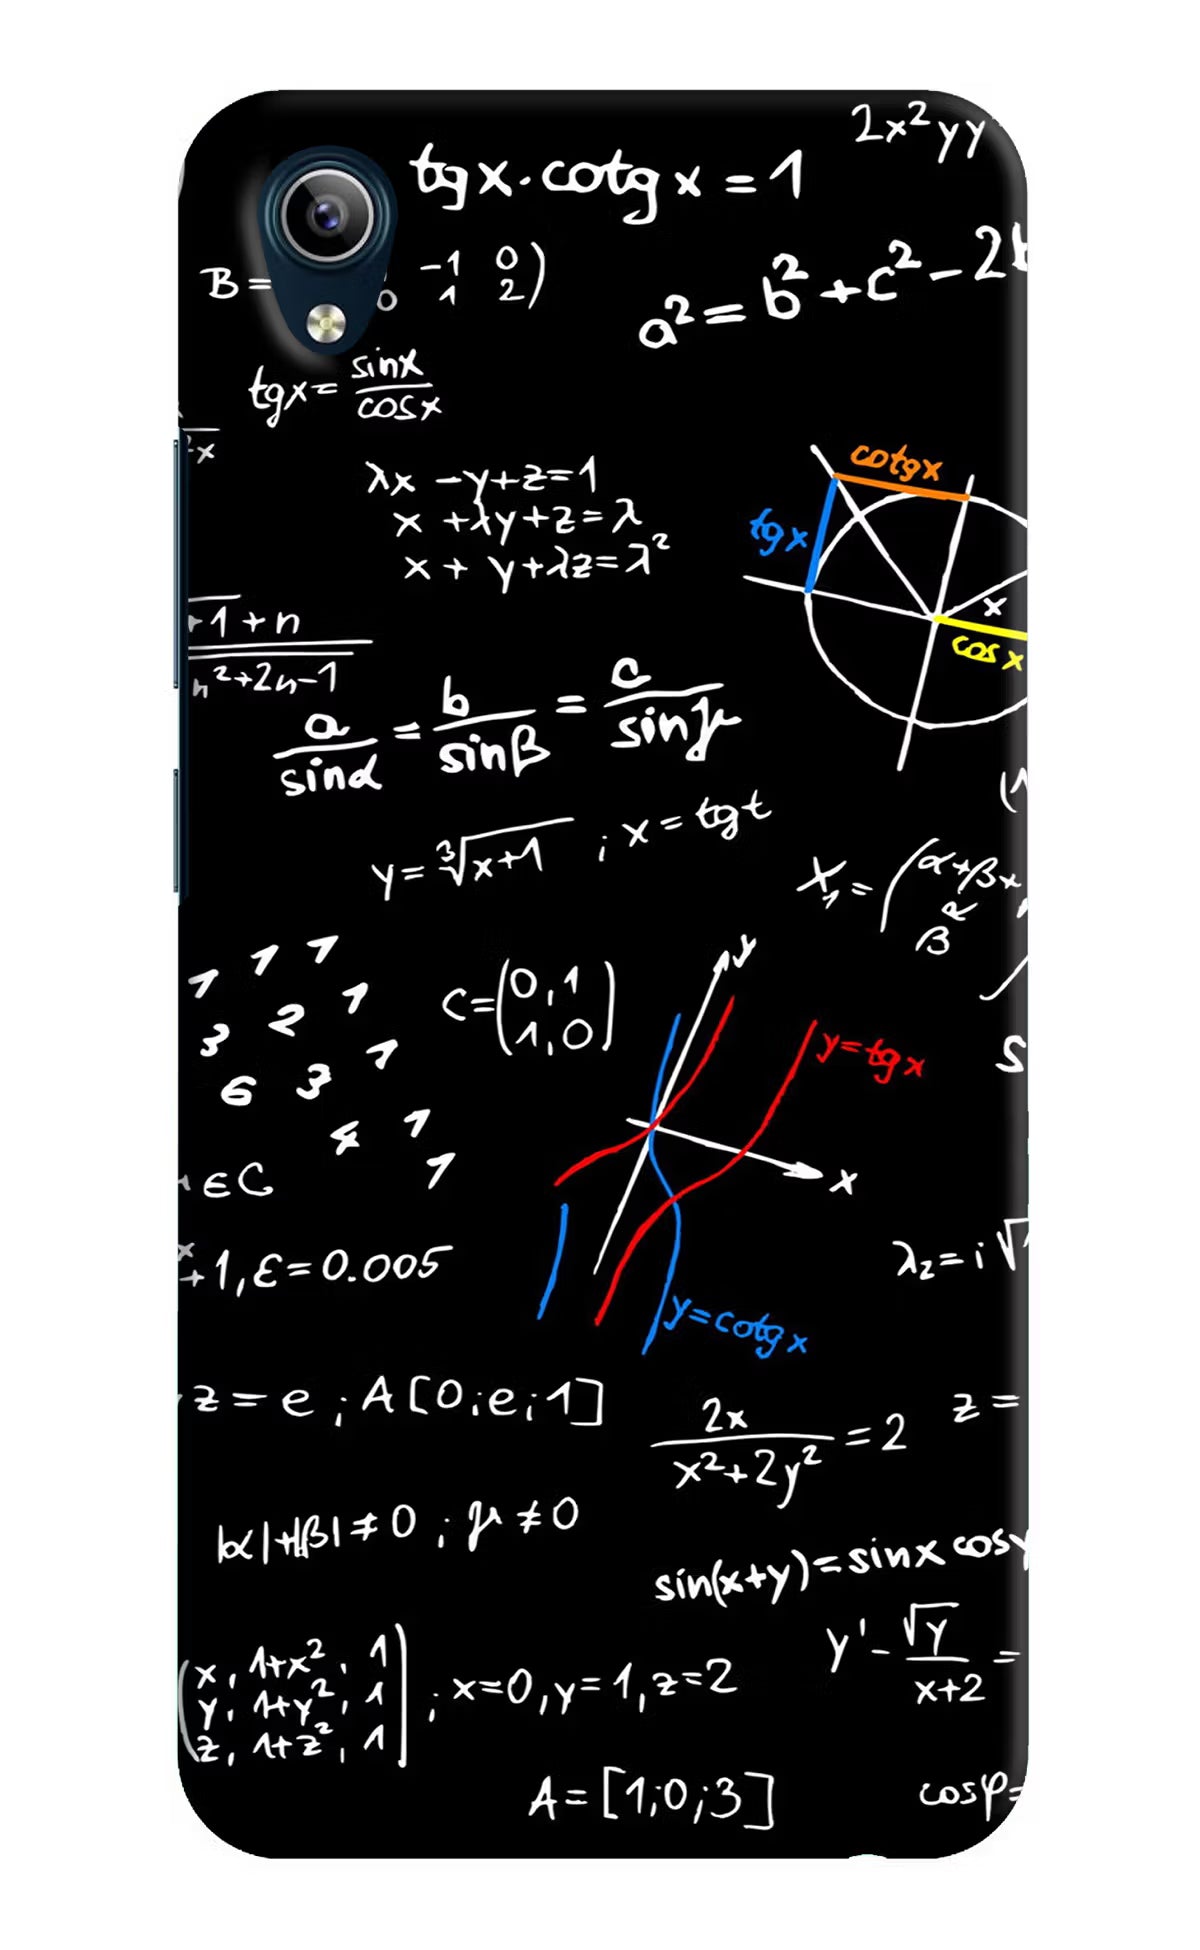 2x²yy
tgx·cotgx=1
B=
-1 0
0 1 2)
a²=b²+c²-2
tgx=sinx/cosx
²x
λx-y+z=1
x+λy+z=λ
x+y+λz=λ²
cotgx
tgx
x
cosx
+1+n
n²+2n-1
a/sinα=b/sinβ=c/sinμ
y=∛x+1 ; x=tgt
X₁=(α+β+
β R
1 1 1
3 2 1
6 3 1
4 1
1
C=(0,1
1,0)
y
y=tgx
x
y=cotgx
S
∈C
x
+1,ε=0.005
λ₂=i√
z=e ; A[0;e;1]
2x/x²+2y²=2
z=
|α|+|β|≠0 ; μ≠0
sin(x+y)=sinx cosy
y'-√y/x+2=
(x, 1+x², 1
y, 1+y², 1
z, 1+z², 1) ; x=0,y=1,z=2
A=[1;0;3]
cosφ=